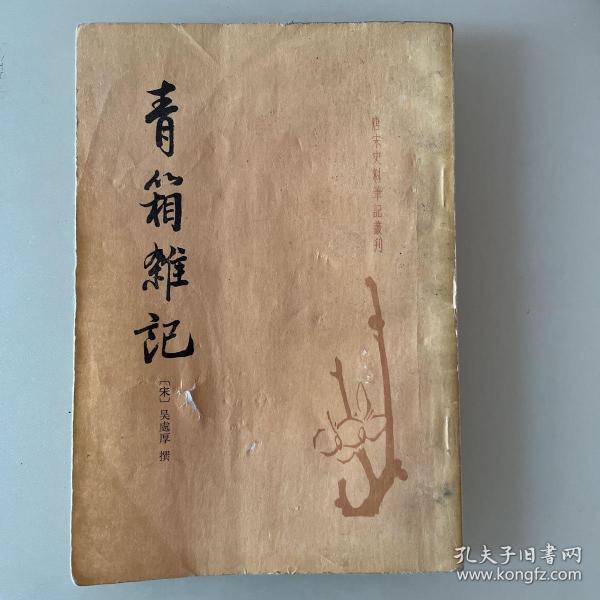 青箱雜記
〔宋〕吴處厚 撰
唐宋史料筆記叢刊
孔夫子旧书网
www.kongfz.com